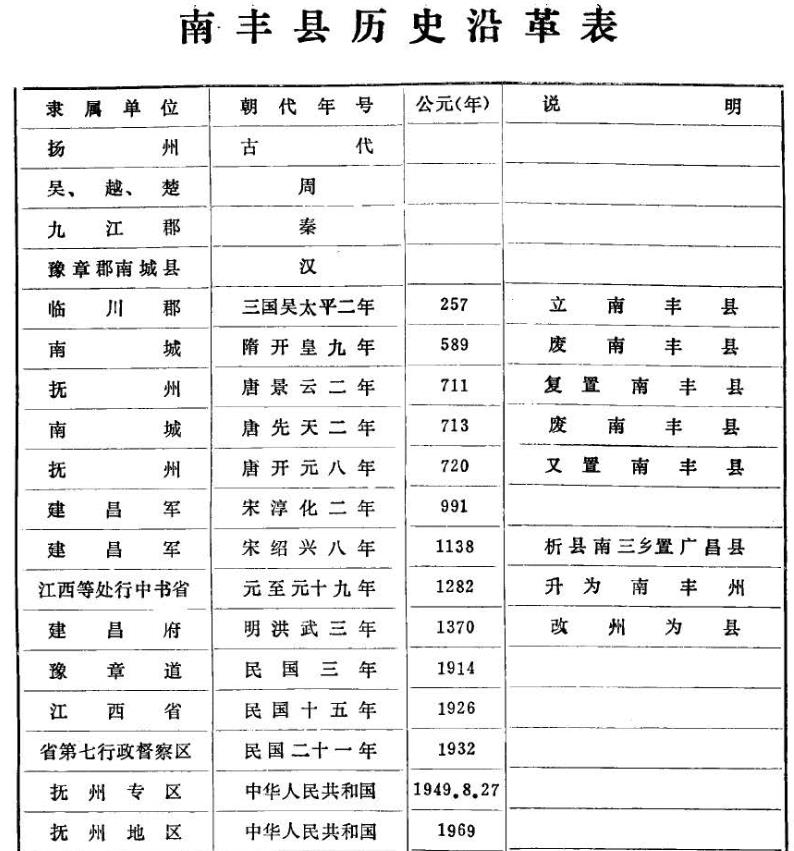 南丰县历史沿革表
隶属单位 朝代年号 公元(年) 说明
扬州 古代
吴、越、楚 周
九江郡 秦
豫章郡南城县 汉
临川郡 三国吴太平二年 257 立南丰县
南城 隋开皇九年 589 废南丰县
抚州 唐景云二年 711 复置南丰县
南城 唐先天二年 713 废南丰县
抚州 唐开元八年 720 又置南丰县
建昌军 宋淳化二年 991
建昌军 宋绍兴八年 1138 析县南三乡置广昌县
江西等处行中书省 元至元十九年 1282 升为南丰州
建昌府 明洪武三年 1370 改州为县
豫章道 民国三年 1914
江西省 民国十五年 1926
省第七行政督察区 民国二十一年 1932
抚州专区 中华人民共和国 1949.8.27
抚州地区 中华人民共和国 1969